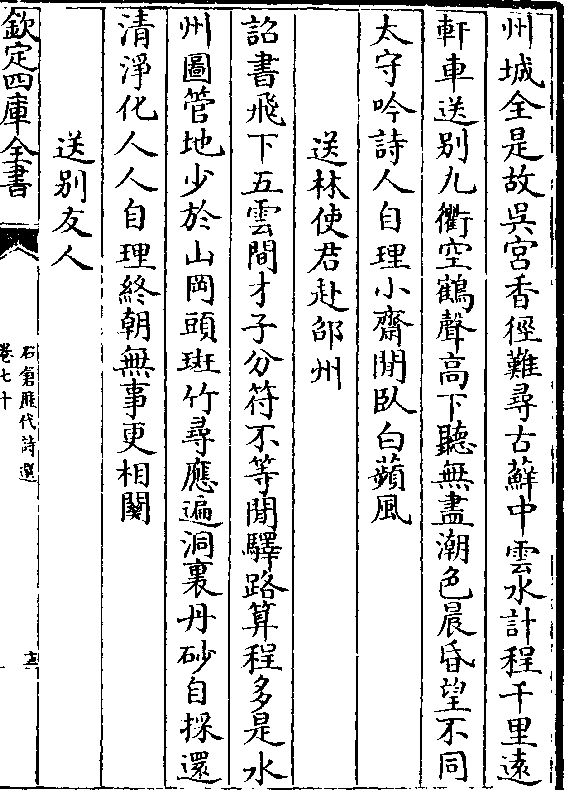 州城全是故吳宮香徑難尋古蘚中雲水計程千里逺
軒車送别九衢空鶴聲髙下聽無盡潮色晨昏望不同
太守吟詩人自理小齋閒臥白蘋風
送林使君赴邵州
詔書飛下五雲間才子分符不等閒驛路算程多是水
州圖管地少於山岡頭斑竹尋應遍洞裏丹砂自採還
清淨化人人自理終朝無事更相關
送别友人
欽定四庫全書
石倉歴代詩選
卷七十